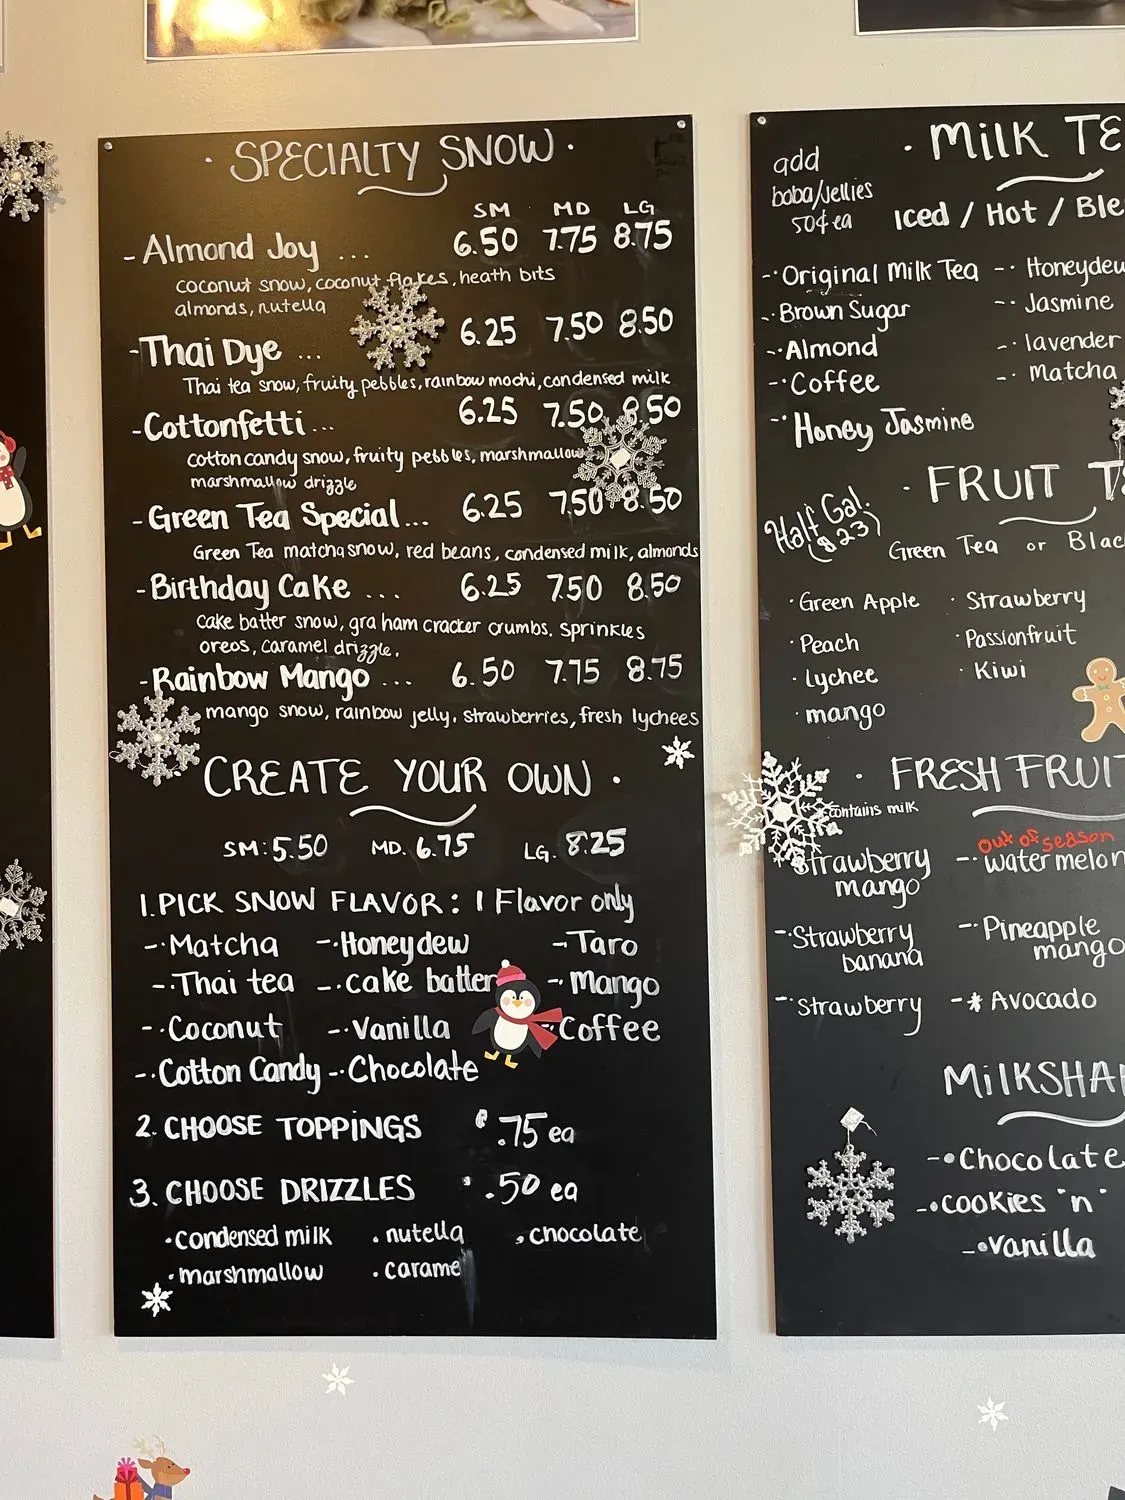 · SPECIALTY SNOW ·
SM MD LG
- Almond Joy ... 6.50 7.75 8.75
coconut snow, coconut flakes, heath bits
almonds, nutella
- Thai Dye ... 6.25 7.50 8.50
Thai tea snow, fruity pebbles, rainbow mochi, condensed milk
- Cottonfetti ... 6.25 7.50 8.50
cotton candy snow, fruity pebbles, marshmallow
marshmallow drizzle
- Green Tea Special ... 6.25 7.50 8.50
Green Tea matcha snow, red beans, condensed milk, almonds
- Birthday Cake ... 6.25 7.50 8.50
cake batter snow, graham cracker crumbs, sprinkles
oreos, caramel drizzle,
- Rainbow Mango ... 6.50 7.75 8.75
mango snow, rainbow jelly, strawberries, fresh lychees
CREATE YOUR OWN ·
SM: 5.50 MD. 6.75 LG. 8.25
1. PICK SNOW FLAVOR: 1 Flavor only
-· Matcha -· Honeydew -· Taro
-· Thai tea -· cake batter -· Mango
-· Coconut -· Vanilla · Coffee
-· Cotton Candy -· Chocolate
2. CHOOSE TOPPINGS .75 ea
3. CHOOSE DRIZZLES .50 ea
· condensed milk · nutella · chocolate
· marshmallow · caramel
· MiLK TE
add
boba/jellies
50¢ ea
Iced / Hot / Ble
-· Original Milk Tea -· Honeydew
-· Brown Sugar -· Jasmine
-· Almond -· lavender
-· Coffee -· Matcha
-· Honey Jasmine
· FRUIT T
Half Gal.
($23)
Green Tea or Blac
· Green Apple · Strawberry
· Peach · Passionfruit
· Lychee · Kiwi
· mango
· FRESH FRUIT
contains milk
out of season
Strawberry -· watermelon
mango
-· Strawberry -· Pineapple
banana mango
-· Strawberry -* Avocado
MiLKSHA
-· Chocolate
-· cookies "n"
-· vanilla